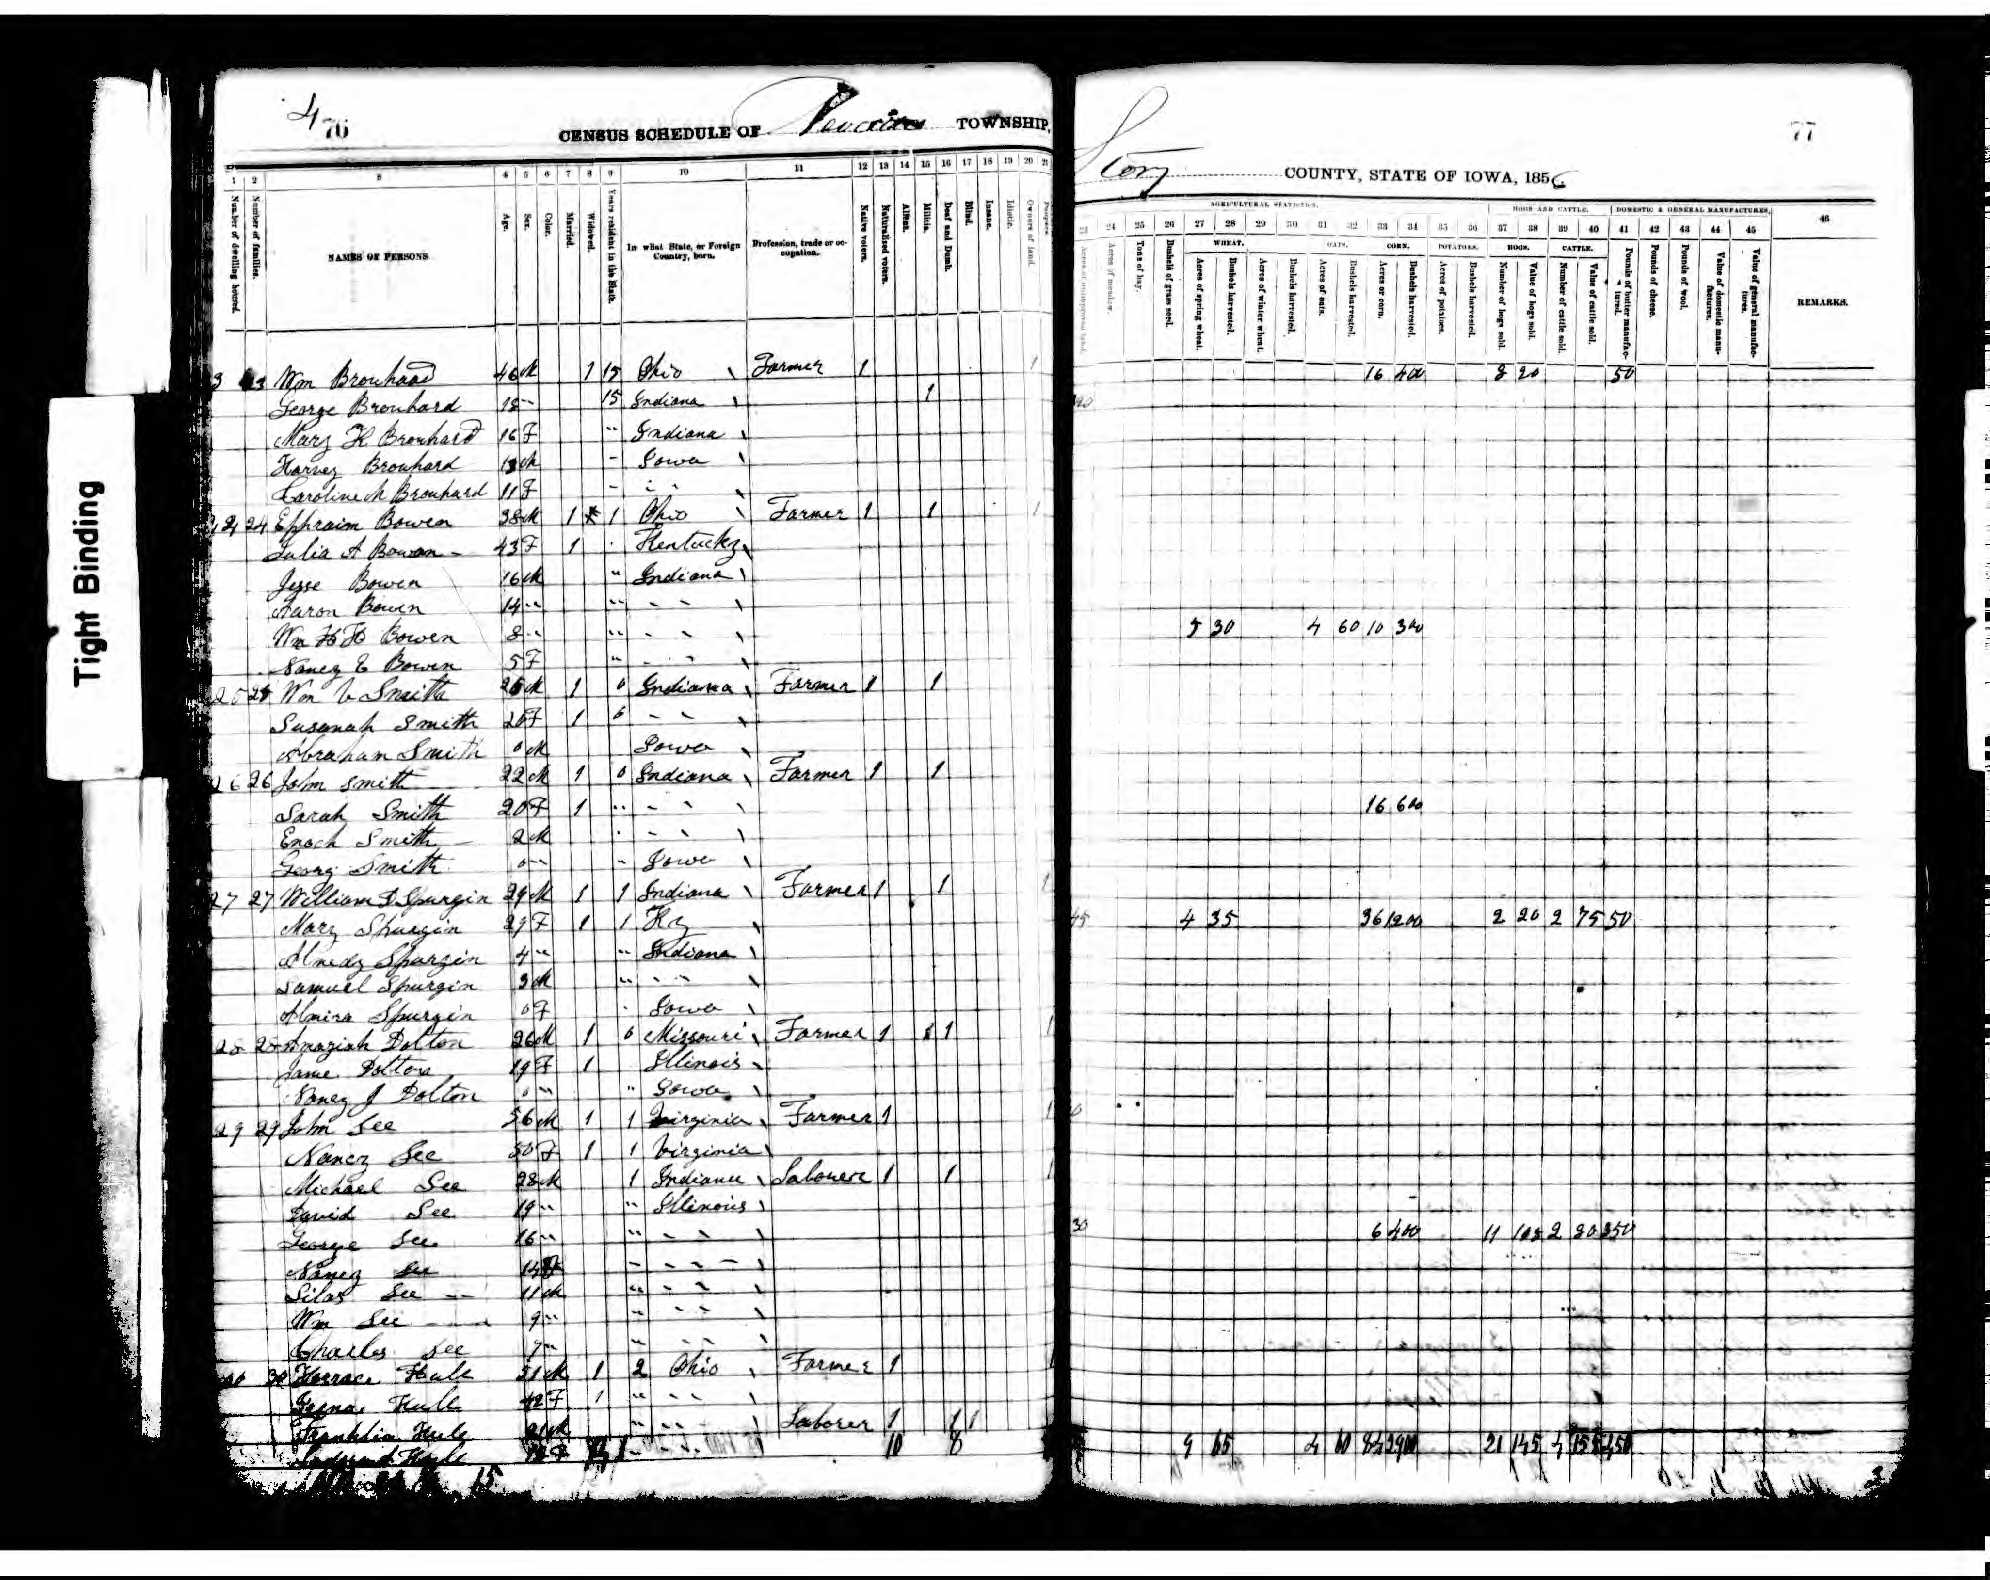 Tight Binding
4 76
CENSUS SCHEDULE OF TOWNSHIP,
1 2 3 4 5 6 7 8 9 10 11 12 13 14 15 16 17 18 19 20 21
Number of dwelling houses. Number of families. NAMES OF PERSONS Age. Sex. Color. Married. Widowed. Years resident in the State. In what State, or Foreign Country, born. Profession, trade or occupation. Native voters. Naturalized voters. Aliens. Militia. Deaf and Dumb. Blind. Insane. Idiotic. Owners of land.
Wm Brouhard 46 M 1 15 Ohio Farmer 1 1
George Brouhard 18 " 15 Indiana 1
Mary H Brouhard 16 F " Indiana
Harvey Brouhard 13 M " Iowa
Caroline M Brouhard 11 F " " "
24 24 Ephraim Bowen 38 M 1 1 Ohio Farmer 1 1 1
Julia A Bowen 43 F 1 Kentucky
Jesse Bowen 16 M " Indiana
Aaron Bowen 14 " " " "
Wm H H Bowen 8 " " " "
Nancy E Bowen 5 F " " "
25 25 Wm Smith M 1 0 Indiana Farmer 1 1
Susanah Smith 20 F 1 0 " "
Abraham Smith 0 M Iowa
26 26 John Smith 22 M 1 0 Indiana Farmer 1 1
Sarah Smith 20 F 1 " " "
Enoch Smith 2 M " " "
Georg Smith 0 " " Iowa
27 27 William Spurgin 29 M 1 1 Indiana Farmer 1 1 1
Mary Spurgin 29 F 1 1 Ky
Spurgin 4 " " Indiana
Samuel Spurgin 3 M " " "
Almira Spurgin 0 F Iowa
28 28 Amaziah Dolton 26 M 1 0 Missouri Farmer 1 1 1
Jane Dolton 19 F 1 Illinois
Nancy J Dolton 0 " " Iowa
29 29 John See 56 M 1 1 Virginia Farmer 1 1
Nancy See 50 F 1 1 Virginia
Michael See 28 M 1 Indiana Laborer 1 1 1
David See 19 " " Illinois
George See 16 " " " "
Nancy See 14 F " " "
Silas See 11 M " " "
Wm See 9 " " " "
Charles See 7 " " " "
30 30 Horrace Hull 51 M 1 2 Ohio Farmer 1
Hull 42 F 1 " " "
Franklin Hull 21 M " " " Laborer 1 1 1
Hull 10 8
15
Story COUNTY, STATE OF IOWA, 1856 77
AGRICULTURAL STATISTICS. HOGS AND CATTLE. DOMESTIC & GENERAL MANUFACTURES,
23 24 25 26 27 28 29 30 31 32 33 34 35 36 37 38 39 40 41 42 43 44 45 46
WHEAT. OATS. CORN. POTATOES. HOGS. CATTLE.
Acres of unimproved land. Acres of meadow. Tons of hay. Bushels of grass seed. Acres of spring wheat. Bushels harvested. Acres of winter wheat. Bushels harvested. Acres of oats. Bushels harvested. Acres or corn. Bushels harvested. Acres of potatoes. Bushels harvested. Number of hogs sold. Value of hogs sold. Number of cattle sold. Value of cattle sold. Pounds of butter manufactured. Pounds of cheese. Pounds of wool. Value of domestic manufactures. Value of general manufactures. REMARKS.
16 400 8 20 50
5 30 4 60 10 300
16 600
45 4 35 36 1200 2 20 2 75 50
30 6 400 11 105 2 80 350
9 65 4 60 84 2900 21 145 4 155 450